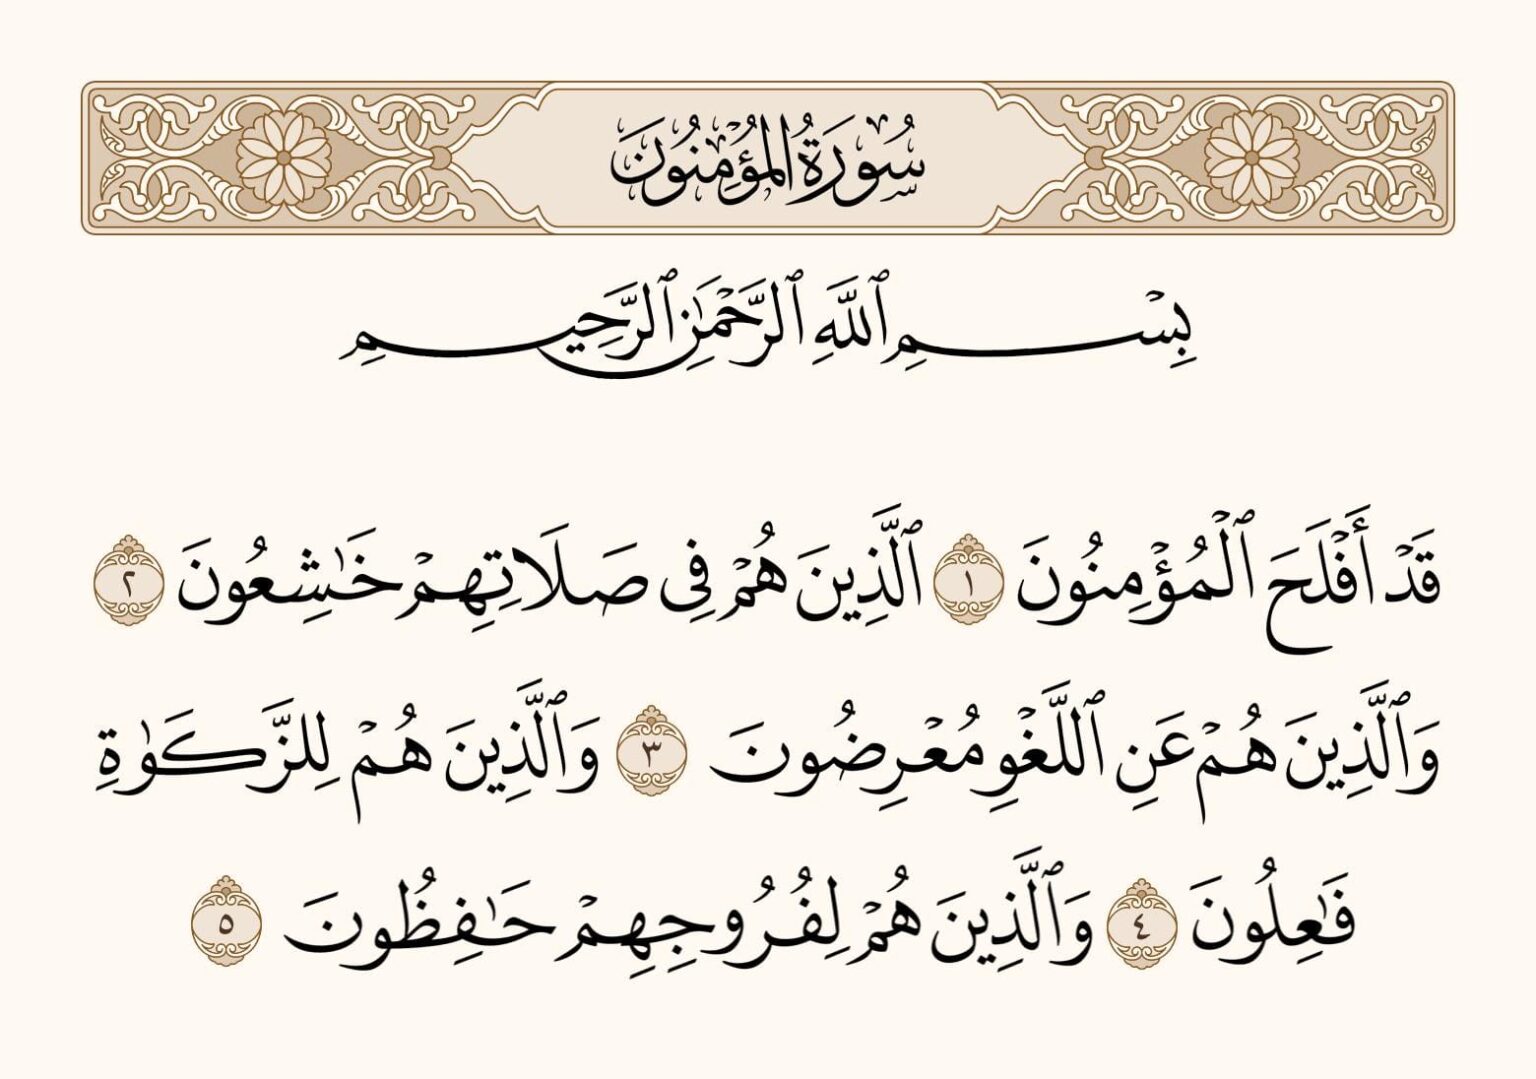 سُورَةُ الْمُؤْمِنُونَ
بِسْمِ ٱللَّهِ ٱلرَّحْمَٰنِ ٱلرَّحِيمِ
قَدْ أَفْلَحَ ٱلْمُؤْمِنُونَ ١ ٱلَّذِينَ هُمْ فِى صَلَاتِهِمْ خَٰشِعُونَ ٢
وَٱلَّذِينَ هُمْ عَنِ ٱللَّغْوِ مُعْرِضُونَ ٣ وَٱلَّذِينَ هُمْ لِلزَّكَوٰةِ
فَٰعِلُونَ ٤ وَٱلَّذِينَ هُمْ لِفُرُوجِهِمْ حَٰفِظُونَ ٥